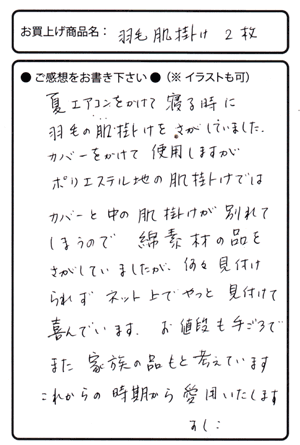 お買上げ商品名： 羽毛肌掛け 2枚
● ご感想をお書き下さい ●（※ イラストも可）
夏エアコンをかけて寝る時に
羽毛の肌掛けをさがしていました.
カバーをかけて使用しますが
ポリエステル地の肌掛けでは
カバーと中の肌掛けが別れて
しまうので 綿素材の品を
さがしていましたが、何々見付け
られず ネット上でやっと見付けて
喜んでいます. お値段も手ごろで
また 家族の品もと考えています
これからの時期から愛用いたします